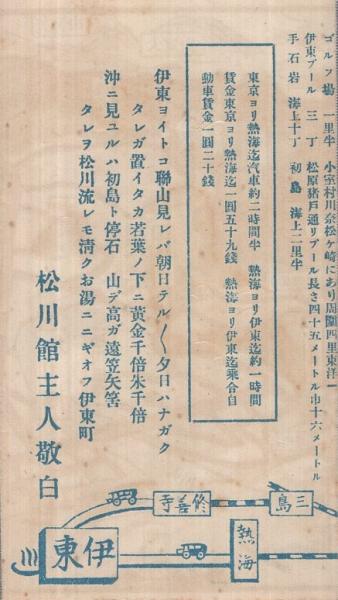 ゴルフ場 一里半 小室村川奈松ヶ崎にあり周圍四里東洋一
伊東プール 三丁 松原猪戸通リプール長さ四十五メートル巾十六メートル
手石岩 海上十丁 初島 海上二里半
東京ヨリ熱海迄汽車約二時間半 熱海ヨリ伊東迄約一時間
賃金東京ヨリ熱海迄一圓五十九錢 熱海ヨリ伊東迄乘合自
動車賃金一圓二十錢
伊東ヨイトコ聯山見レバ朝日テル〱夕日ハナガク
タレガ置イタカ若葉ノ下ニ黄金千倍朱千倍
沖ニ見ユルハ初島ト停石 山デ高ガ遠笠矢筈
タレヲ松川流レモ清クお湯ニニギオフ伊東町
松川館主人敬白
三島
修善寺
熱海
伊東